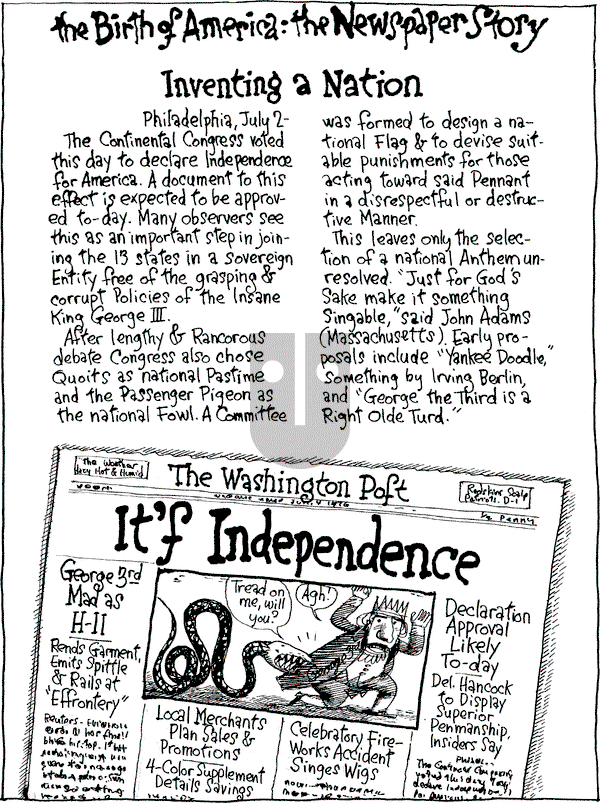 the Birth of America: the Newspaper Story
Inventing a Nation
Philadelphia, July 2-
The Continental Congress voted
this day to declare Independence
for America. A document to this
effect is expected to be approv-
ed to-day. Many observers see
this as an important step in join-
ing the 13 states in a sovereign
Entity free of the grasping &
corrupt Policies of the Insane
King George III.
After lengthy & Rancorous
debate Congress also chose
Quoits as national Pastime
and the Passenger Pigeon as
the national Fowl. A Committee
was formed to design a na-
tional Flag & to devise suit-
able punishments for those
acting toward said Pennant
in a disrespectful or destruc-
tive Manner.
This leaves only the selec-
tion of a national Anthem un-
resolved. "Just for God's
Sake make it something
Singable," said John Adams
(Massachusetts). Early pro-
posals include "Yankee Doodle,"
something by Irving Berlin,
and "George the Third is a
Right Olde Turd."
The Weather
Hazy Hot & Humid
The Washington Poft
Redskins Scalp
Patriots. D-1
It'f Independence
George 3rd
Mad as
H-ll
Rends Garment,
Emits Spittle
& Rails at
"Effrontery"
Tread on
me, will
you?
Agh!
Local Merchants
Plan Sales &
Promotions
4-Color Supplement
Details Savings
Celebratory Fire-
Works Accident
Singes Wigs
Declaration
Approval
Likely
To-day
Del. Hancock
to Display
Superior
Penmanship,
Insiders Say